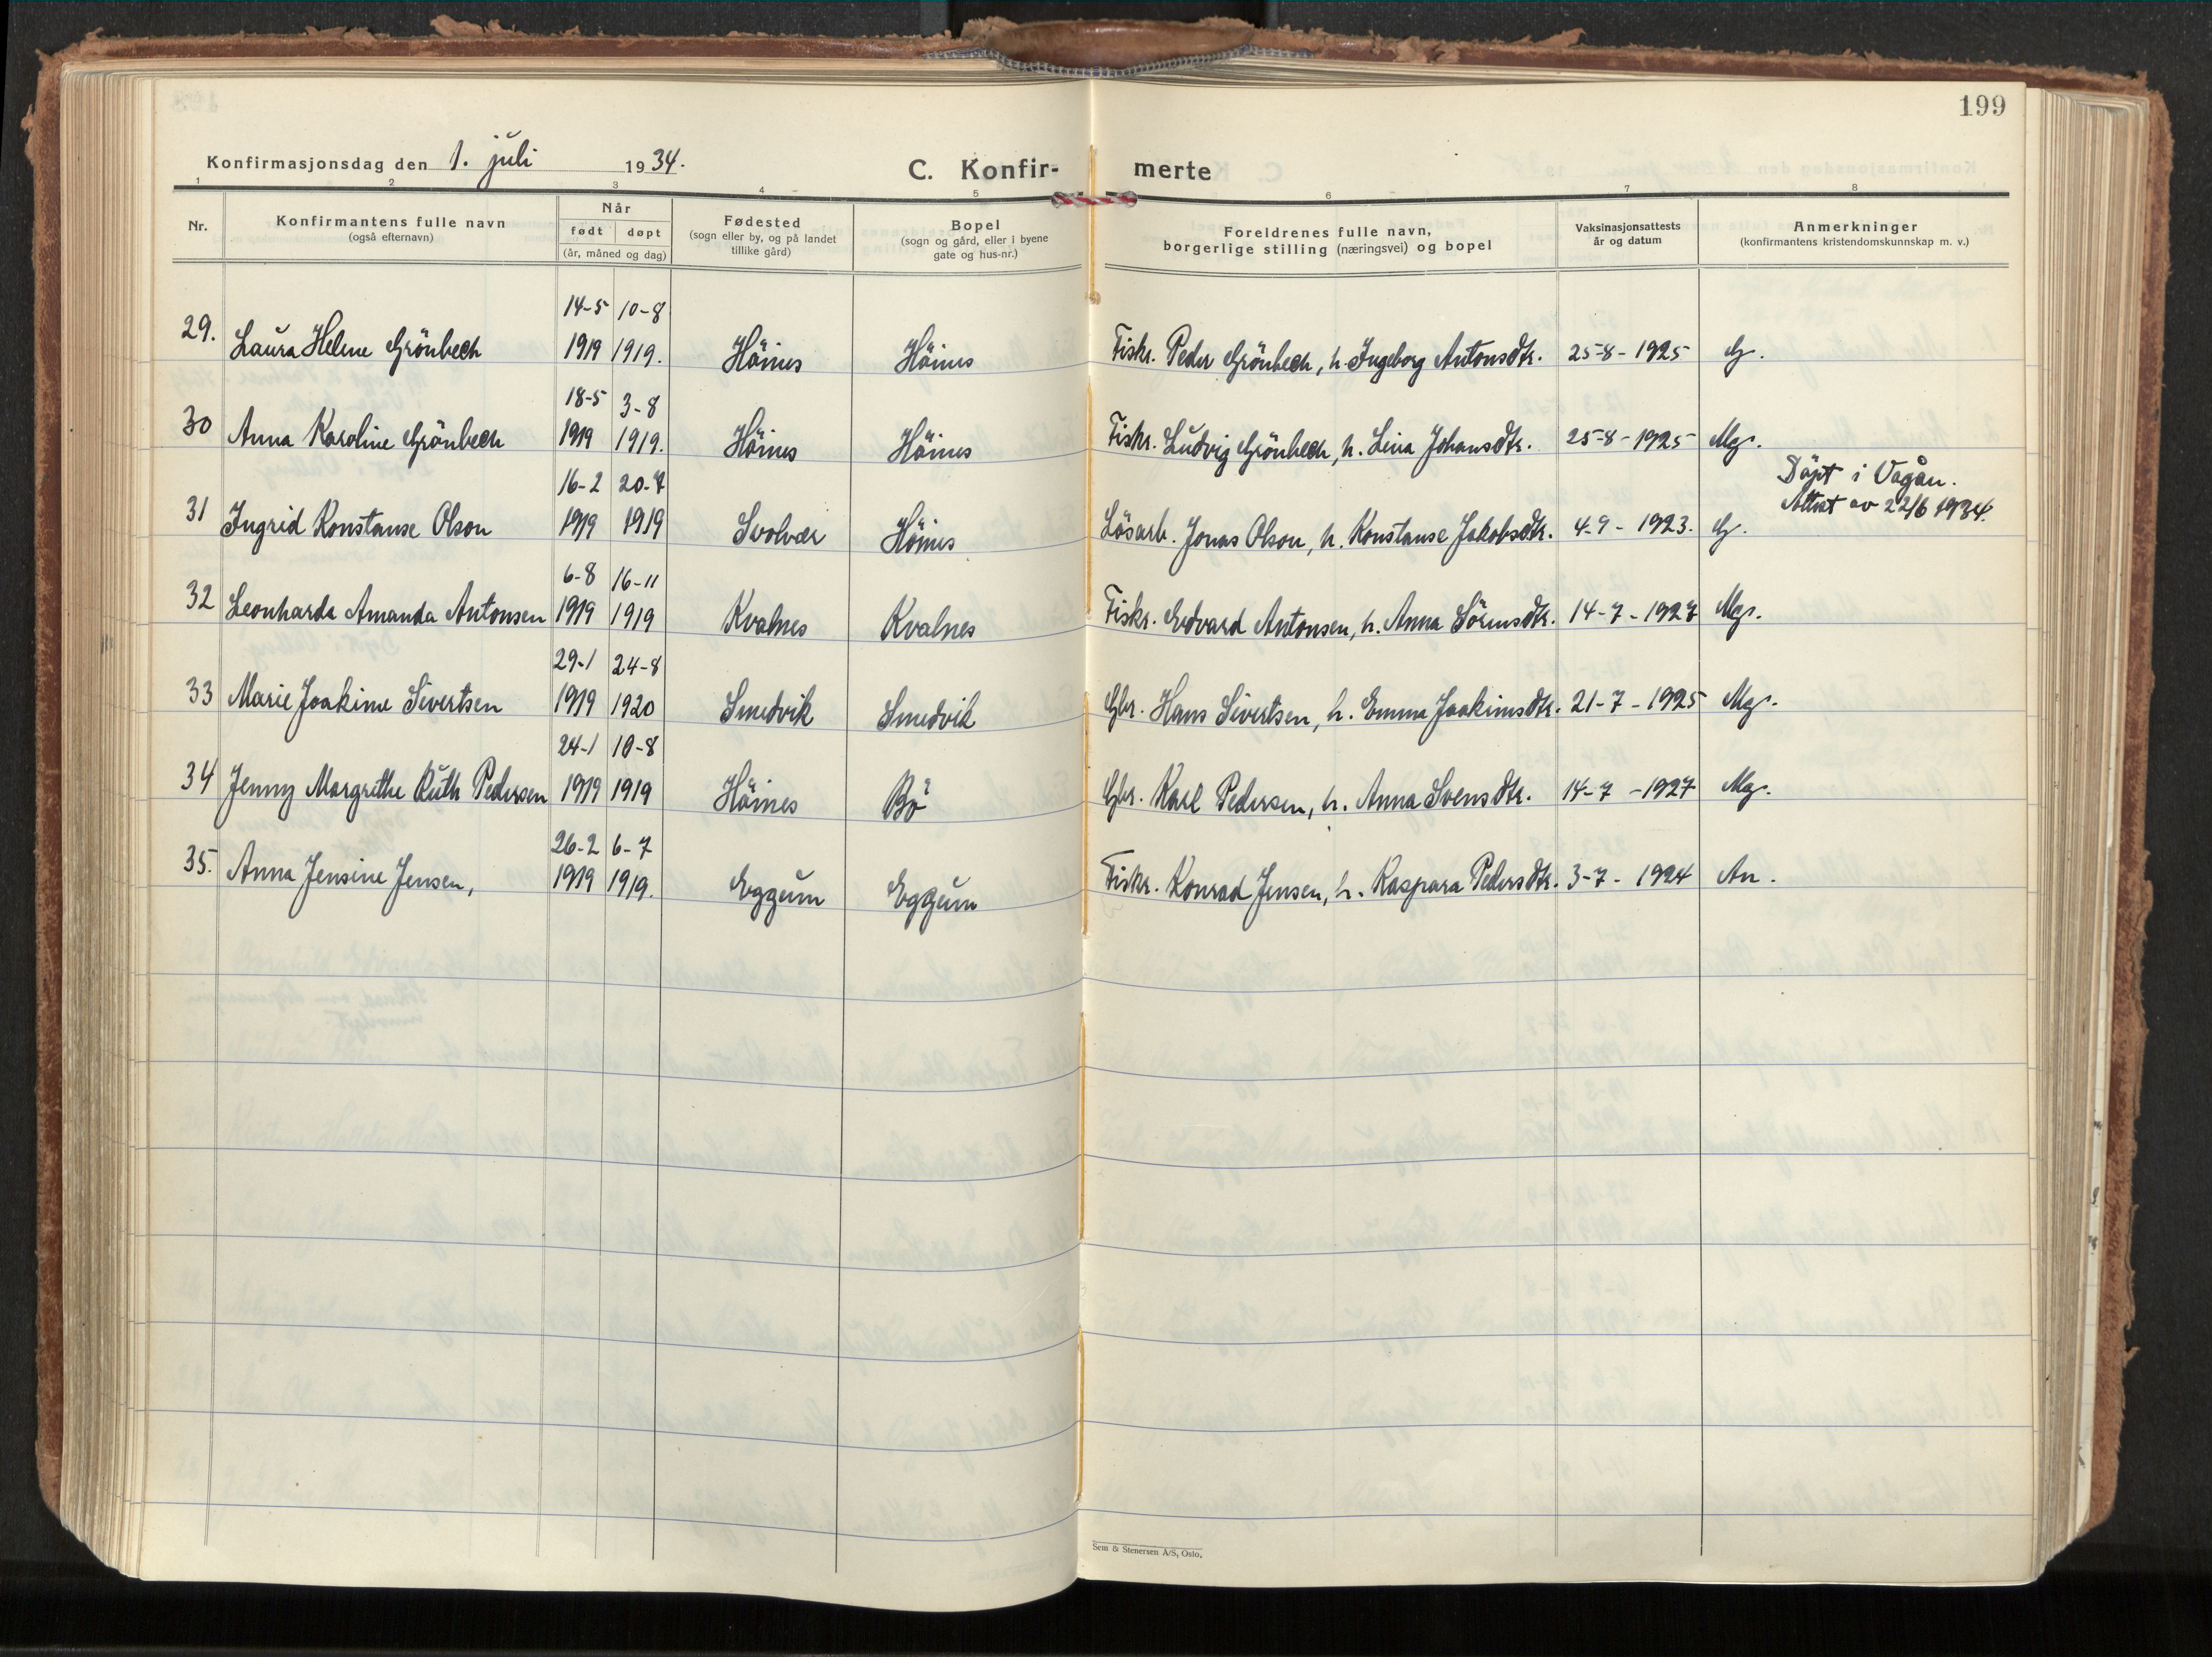 199
Konfirmasjonsdag den 1. juli 1934.
C. Konfir- merte
1 2 3 4 5 6 7 8
Nr.
Konfirmantens fulle navn
(også efternavn)
Når
født døpt
(år, måned og dag)
Fødested
(sogn eller by, og på landet
tillike gård)
Bopel
(sogn og gård, eller i byene
gate og hus-nr.)
Foreldrenes fulle navn,
borgerlige stilling (næringsvei) og bopel
Vaksinasjonsattests
år og datum
Anmerkninger
(konfirmantens kristendomskunnskap m. v.)
14-5 10-8
29. Laura Helene Grönbech 1919 1919. Höines Höines Fiskr. Peder Grönbech, h. Ingeborg Antonsdtr. 25-8-1925 G.
18-5 3-8
30 Anna Karoline Grönbech 1919 1919. Höines Höines Fiskr. Ludvig Grönbech, h. Lina Johansdtr. 25-8-1925 Mg.
Döpt i Vågan.
16-2 20-7 Attest av 22/6 1934.
31 Ingrid Konstanse Olson 1919 1919 Svolvær Höines Lösarb. Jonas Olson, h. Konstanse Jakobsdtr. 4-9-1923. G.
6-8 16-11
32 Leonharda Amanda Antonsen 1919 1919 Kvalnes Kvalnes Fiskr. Edvard Antonsen, h. Anna Sörensdtr. 14-7-1927 Mg.
29-1 24-8
33 Marie Joakime Sivertsen 1919 1920 Smedvik Smedvik Gbr. Hans Sivertsen, h. Emma Joakimsdtr. 21-7-1925 Mg.
24-1 10-8
34 Jenny Margrethe Ruth Pedersen 1919 1919 Höines Bö Gbr. Karl Pedersen, h. Anna Svensdtr. 14-7-1927 Mg.
26-2 6-7
35. Anna Jensine Jensen, 1919 1919. Eggum Eggum Fiskr. Konrad Jensen, h. Kaspara Pedersdtr. 3-7-1924 An.
Sem & Stenersen A/S, Oslo.